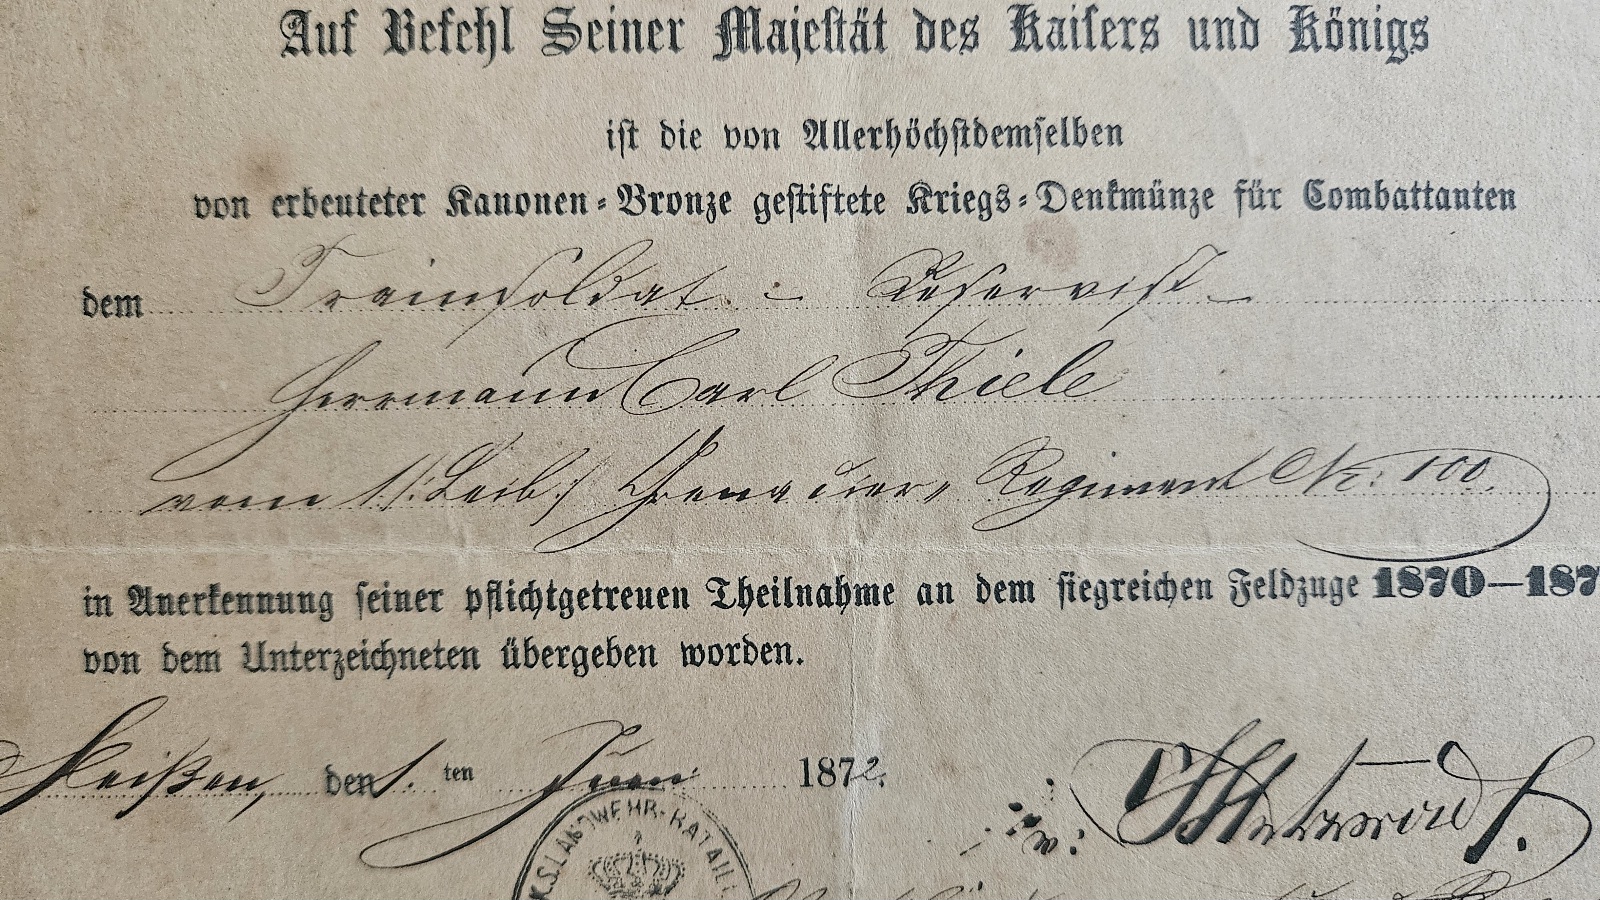 Auf Befehl Seiner Majestät des Kaisers und Königs
ist die von Allerhöchstdemselben
von erbeuteter Kanonen-Bronze gestiftete Kriegs-Denkmünze für Combattanten
dem Trainsoldat - Reservist
Herrmann Carl Thiele
vom 1. (Leib-) Grenadier-Regiment No: 100.
in Anerkennung seiner pflichtgetreuen Theilnahme an dem siegreichen Feldzuge 1870—187
von dem Unterzeichneten übergeben worden.
Meißen, den 1. ten Juni 1872.
v:
K.S. LANDWEHR-BATAILL